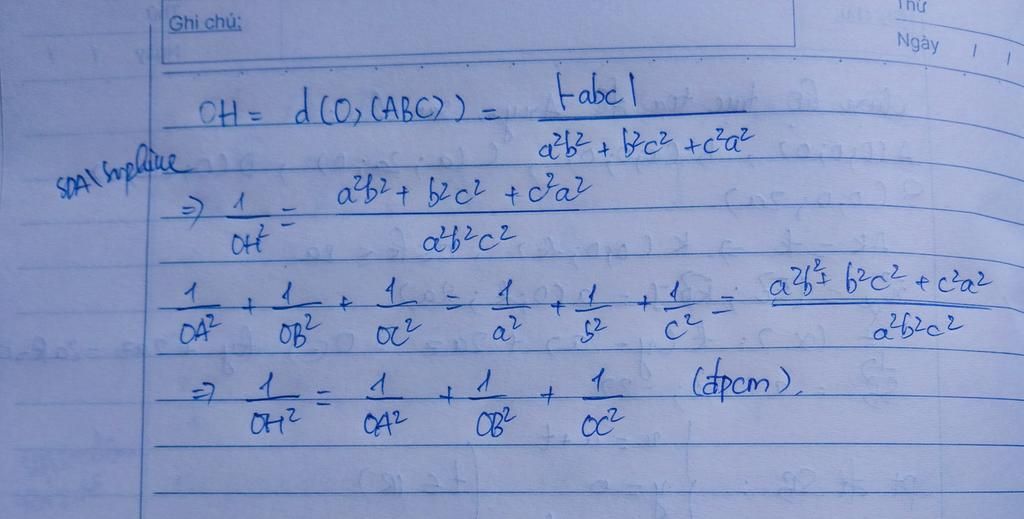 Ghi chú:
Thứ
Ngày / /
OH = d(O, (ABC)) = |-abc| / a²b² + b²c² + c²a²
=> 1/OH² = a²b² + b²c² + c²a² / a²b²c²
1/OA² + 1/OB² + 1/OC² = 1/a² + 1/b² + 1/c² = a²b² + b²c² + c²a² / a²b²c²
=> 1/OH² = 1/OA² + 1/OB² + 1/OC² (đpcm).